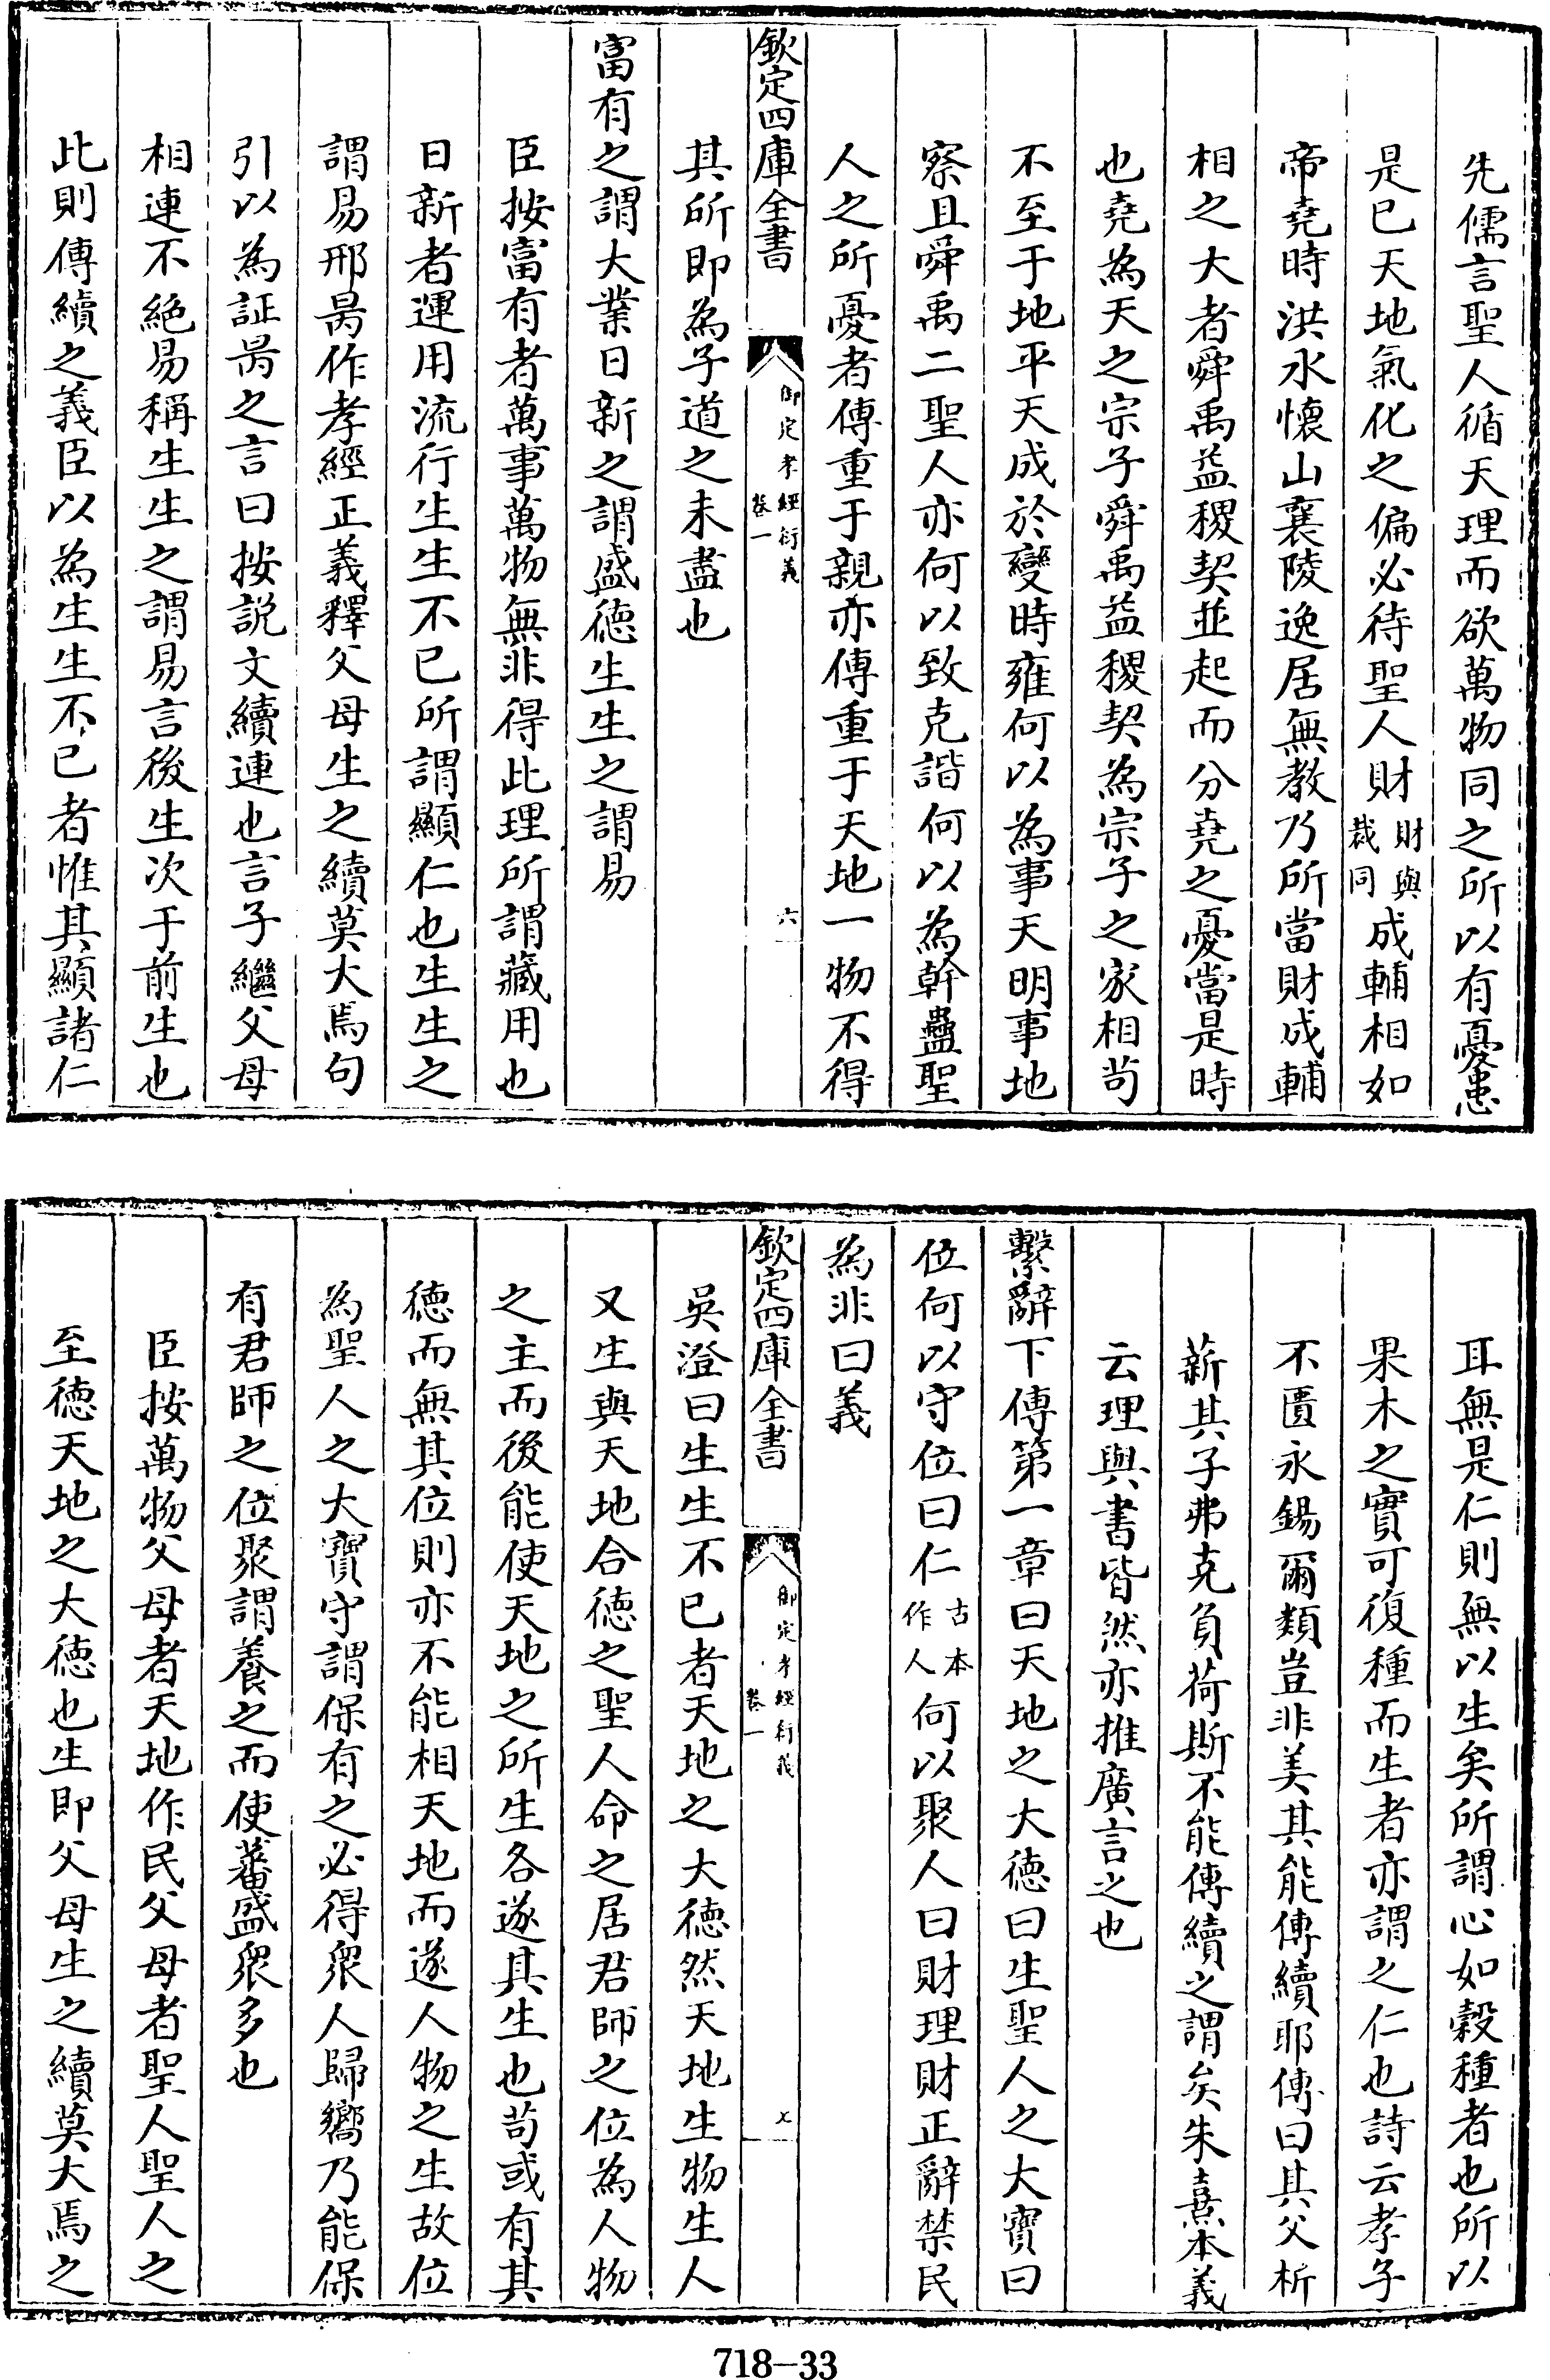 先儒言聖人循天理而欲萬物同之所以有憂患
是已天地氣化之偏必待聖人財財與裁同成輔相如
帝堯時洪水懷山襄陵逸居無教乃所當財成輔
相之大者舜禹益稷契並起而分堯之憂當是時
也堯為天之宗子舜禹益稷契為宗子之家相苟
不至于地平天成於變時雍何以為事天明事地
察且舜禹二聖人亦何以致克諧何以為幹蠱聖
人之所憂者傳重于親亦傳重于天地一物不得
欽定四庫全書
御定孝經衍義
卷一
六
其所即為子道之未盡也
富有之謂大業日新之謂盛徳生生之謂易
臣按富有者萬事萬物無非得此理所謂藏用也
日新者運用流行生生不已所謂顯仁也生生之
謂易邢昺作孝經正義釋父母生之續莫大焉句
引以為証昺之言曰按説文續連也言子繼父母
相連不絶易稱生生之謂易言後生次于前生也
此則傳續之義臣以為生生不已者惟其顯諸仁
耳無是仁則無以生矣所謂心如穀種者也所以
果木之實可復種而生者亦謂之仁也詩云孝子
不匱永錫爾類豈非美其能傳續耶傳曰其父析
薪其子弗克負荷斯不能傳續之謂矣朱熹本義
云理與書皆然亦推廣言之也
繫辭下傳第一章曰天地之大徳曰生聖人之大寶曰
位何以守位曰仁古本作人何以聚人曰財理財正辭禁民
為非曰義
欽定四庫全書
御定孝經衍義
卷一
七
吳澄曰生生不已者天地之大徳然天地生物生人
又生與天地合徳之聖人命之居君師之位為人物
之主而後能使天地之所生各遂其生也苟或有其
徳而無其位則亦不能相天地而遂人物之生故位
為聖人之大寶守謂保有之必得衆人歸嚮乃能保
有君師之位聚謂養之而使蕃盛衆多也
臣按萬物父母者天地作民父母者聖人聖人之
至徳天地之大徳也生即父母生之續莫大焉之
718-33